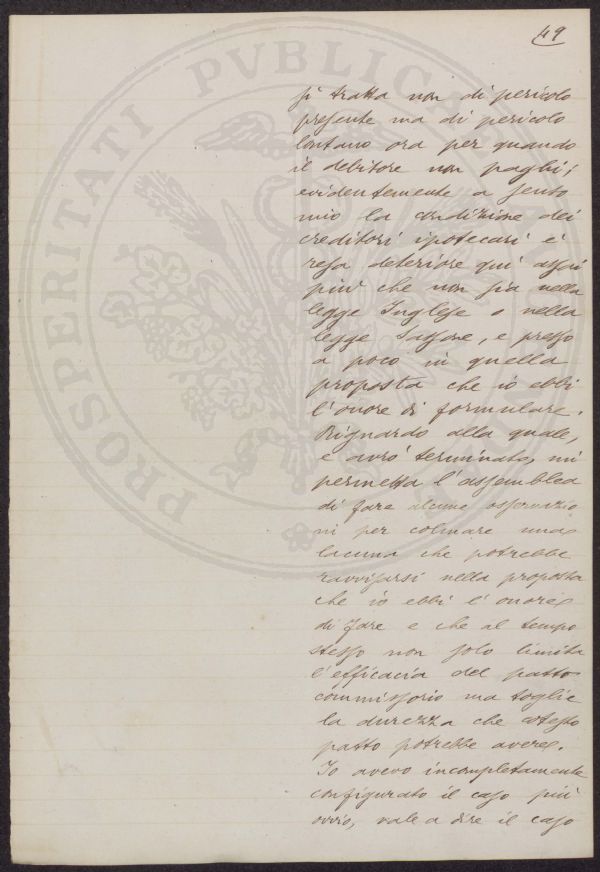 49
si tratta non di pericolo
presente ma di pericolo
lontano ora per quando
il debitore non paghi;
evidentemente a senso
mio la condizione dei
creditori ipotecari è
resa deteriore qui assai
più che non sia nella
legge Inglese o nella
legge Sassone, e presso
a poco in quella
proposta che io ebbi
l'onore di formulare.
Riguardo alla quale,
e avrò terminato, mi
permetta l'assemblea
di fare alcune osservazio
ni per colmare una
lacuna che potrebbe
ravvisarsi nella proposta
che io ebbi l'onore
di fare e che al tempo
stesso non solo limita
l'efficacia del patto
commissorio ma toglie
la durezza che cotesto
patto potrebbe avere.
Io avevo incompletamente
configurato il caso più
ovvio, vale a dire il caso
PROSPERITATI PVBLICAE